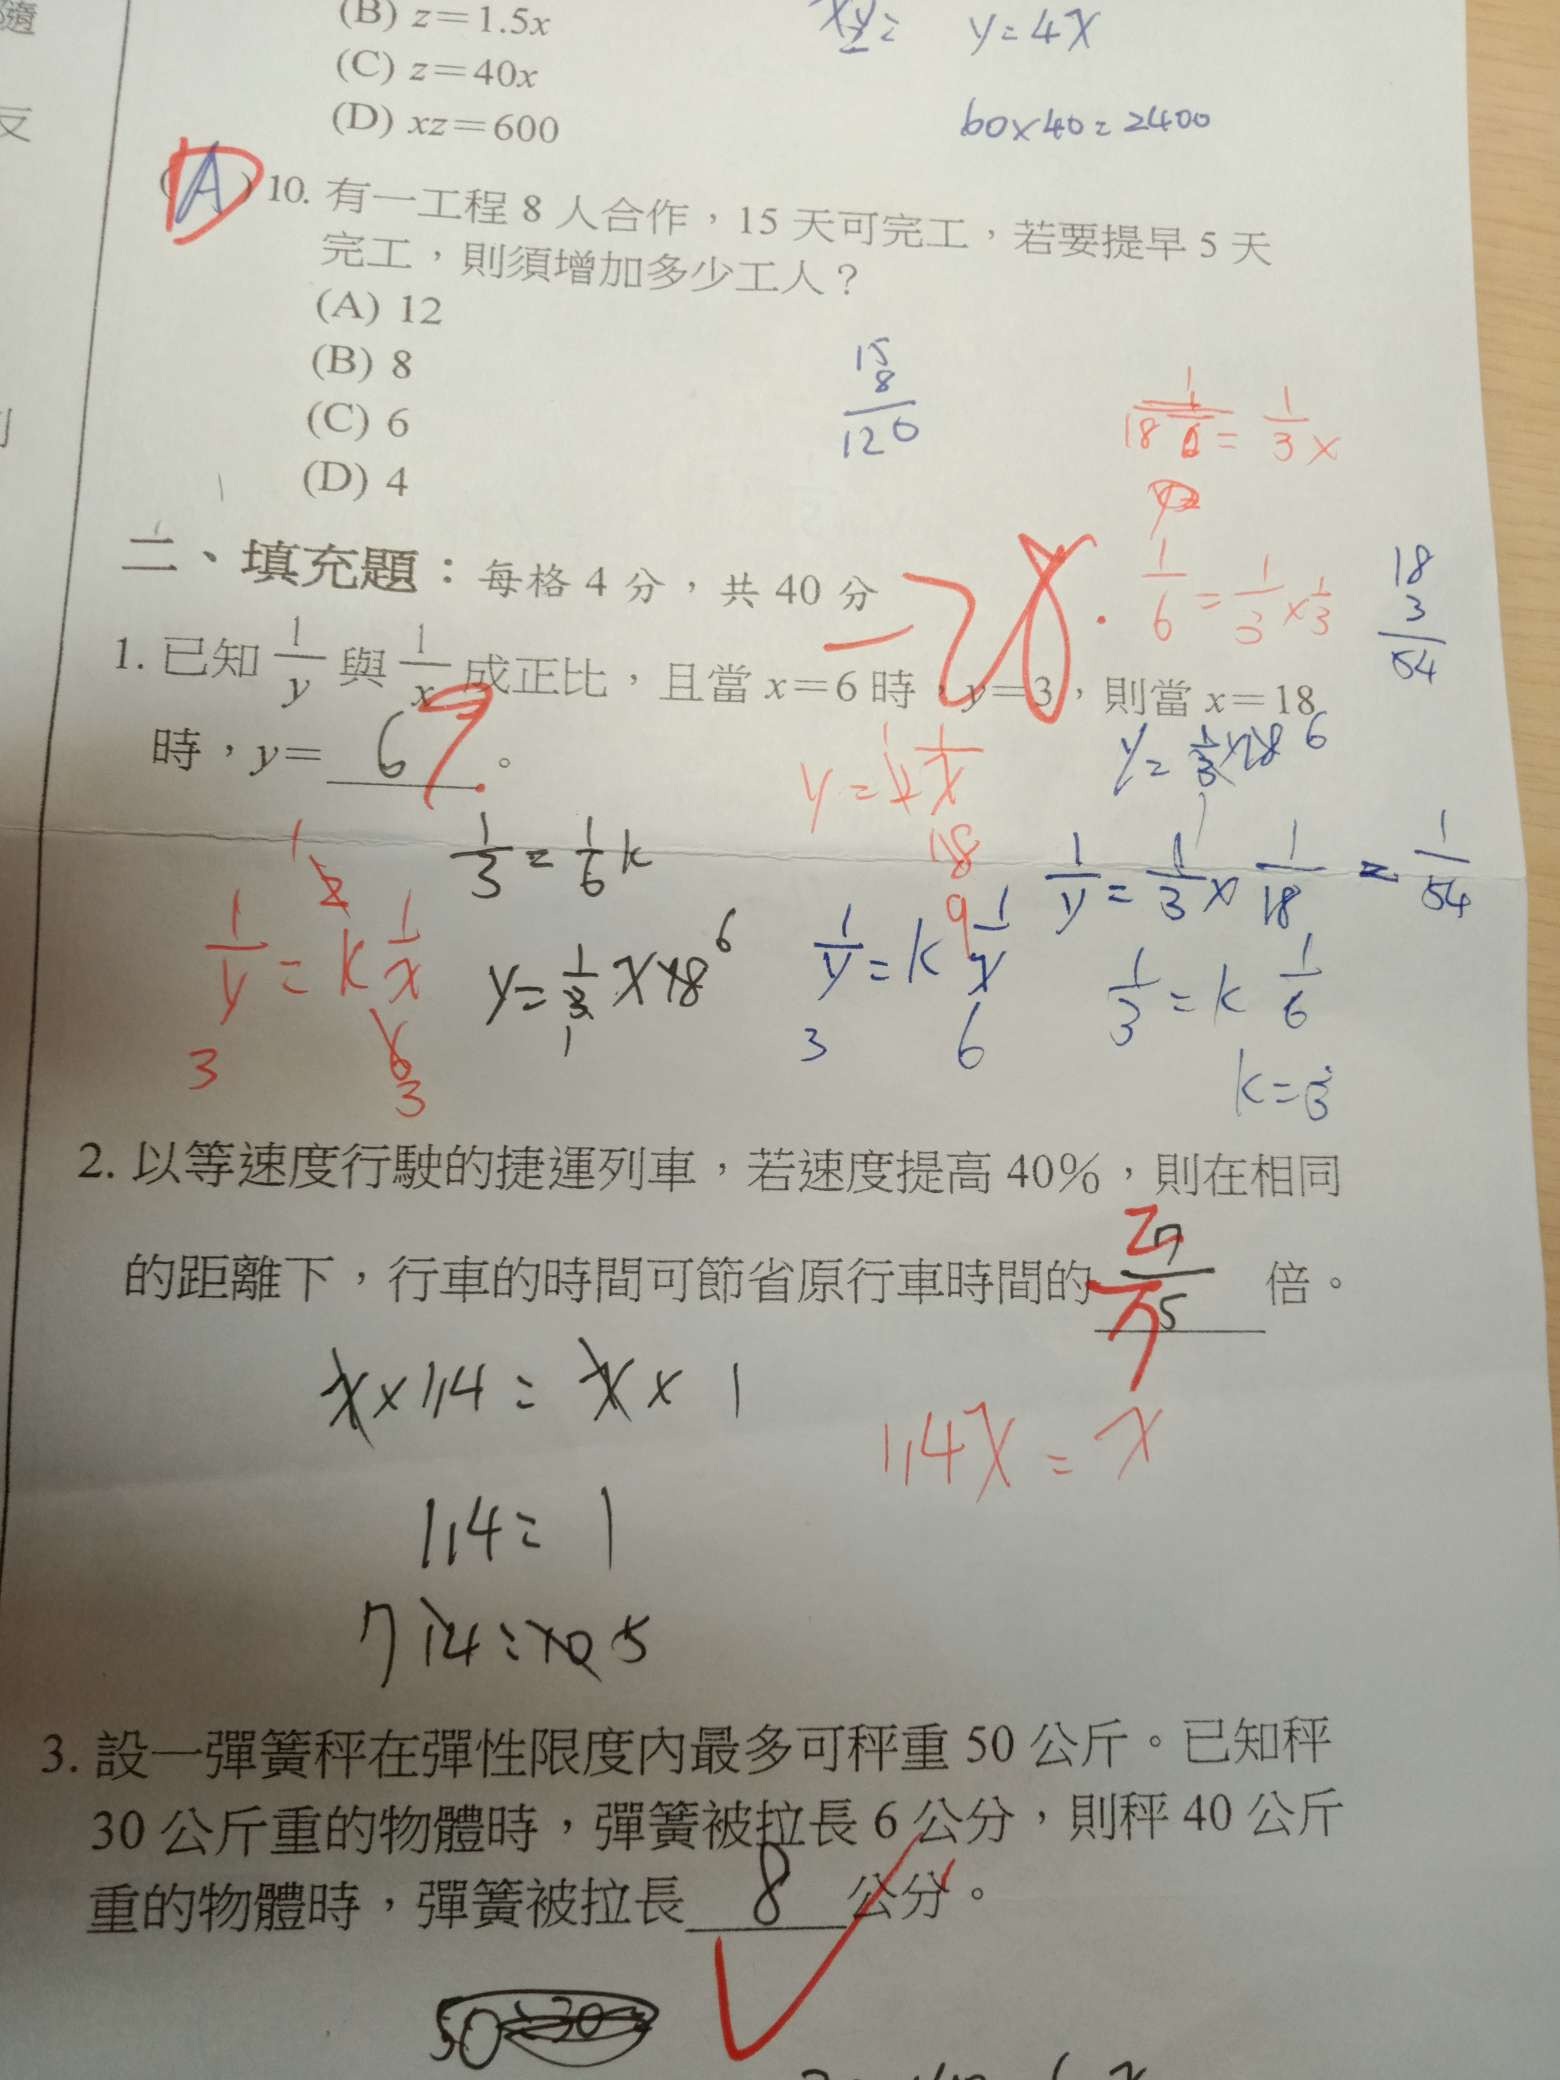 隨
(B) z=1.5x
y=4x
(C) z=40x
反
(D) xz=600
60×40=2400
(A) 10. 有一工程 8 人合作，15 天可完工，若要提早 5 天
D
完工，則須增加多少工人？
(A) 12
(B) 8
(C) 6
(D) 4
15
8
120
1/3 x
1/6 = 1/3 × 1/3
18
3
54
二、填充題：每格 4 分，共 40 分
-28
1. 已知 1/y 與 1/x 成正比，且當 x=6 時，y=3，則當 x=18
時，y= 6 。
y= 1/3 ×18 6
1/3 = 1/6 k
18
9
1/y = 1/3 × 1/18 = 1/54
1/y = k 1/x
3
6
3
y= 1/3 × 18 6
1
1/y = k 1/x
3
6
1/3 = k 1/6
2. 以等速度行駛的捷運列車，若速度提高 40%，則在相同
的距離下，行車的時間可節省原行車時間的 7/5 倍。
2/7
x×1.4 = x×1
1.4x = x
1.4 = 1
7 14 : 10 5
3. 設一彈簧秤在彈性限度內最多可秤重 50 公斤。已知秤
30 公斤重的物體時，彈簧被拉長 6 公分，則秤 40 公斤
重的物體時，彈簧被拉長 8 公分。
50